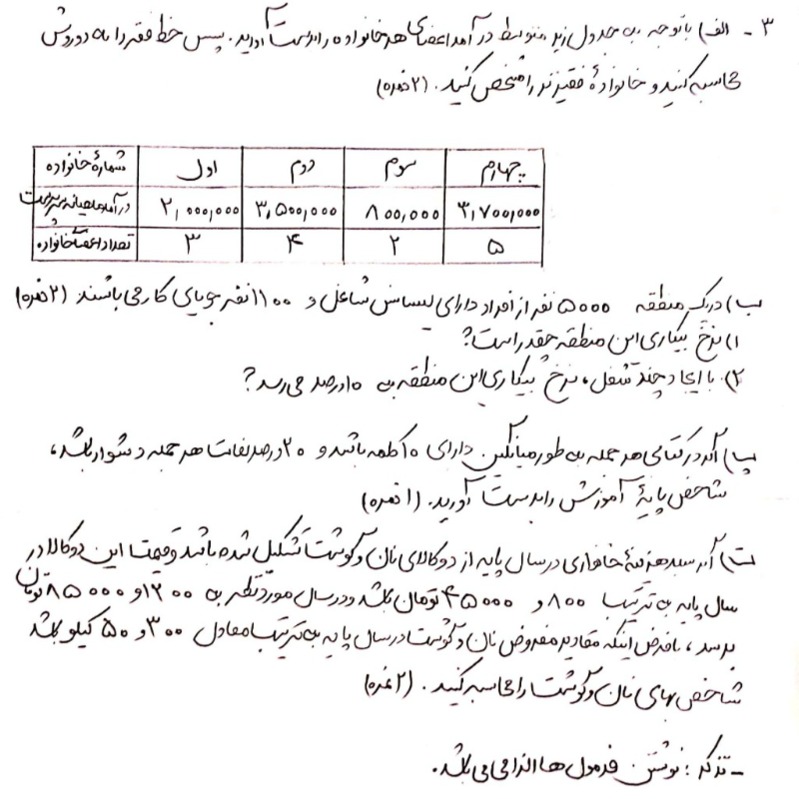 ۳ - الف) با توجه به جدول زیر متوسط درآمد اعضای هر خانواده را بدست آورید. سپس خط فقر را به دو روش
محاسبه کنید و خانوادهٔ فقیرتر را مشخص کنید. (۲ نمره)
شمارهٔ خانواده اول دوم سوم چهارم
درآمد ماهیانه سرپرست ۲,۰۰۰,۰۰۰ ۳,۵۰۰,۰۰۰ ۸۰۰,۰۰۰ ۳,۷۰۰,۰۰۰
تعداد اعضا خانواده ۳ ۴ ۲ ۵
ب) در یک منطقه ۵۰۰۰ نفر از افراد دارای لیسانس شاغل و ۱۱۰۰ نفر جویای کار می باشند (۲ نمره)
۱) نرخ بیکاری این منطقه چقدر است؟
۲) با ایجاد چند شغل، نرخ بیکاری این منطقه به ۱۰ درصد می رسد؟
پ) اگر در کتابی هر جمله به طور میانگین دارای ۱۰ کلمه باشد و ۲۰ درصد لغات هر جمله دشوار باشد،
شاخص پایهٔ آموزش را بدست آورید. (۱ نمره)
ت) اگر سبد هزینهٔ خانواری در سال پایه از دو کالای نان و گوشت تشکیل شده باشد و قیمت این دو کالا در
سال پایه به ترتیب ۸۰۰ و ۴۵۰۰۰ تومان باشد و در سال مورد نظر به ۱۲۰۰ و ۸۵۰۰۰ تومان
برسد، با فرض اینکه مقادیر مفروض نان و گوشت در سال پایه به ترتیب معادل ۳۰۰ و ۵۰ کیلو باشد
شاخص بهای نان و گوشت را محاسبه کنید. (۲ نمره)
- تذکر: نوشتن فرمول ها الزامی می باشد.